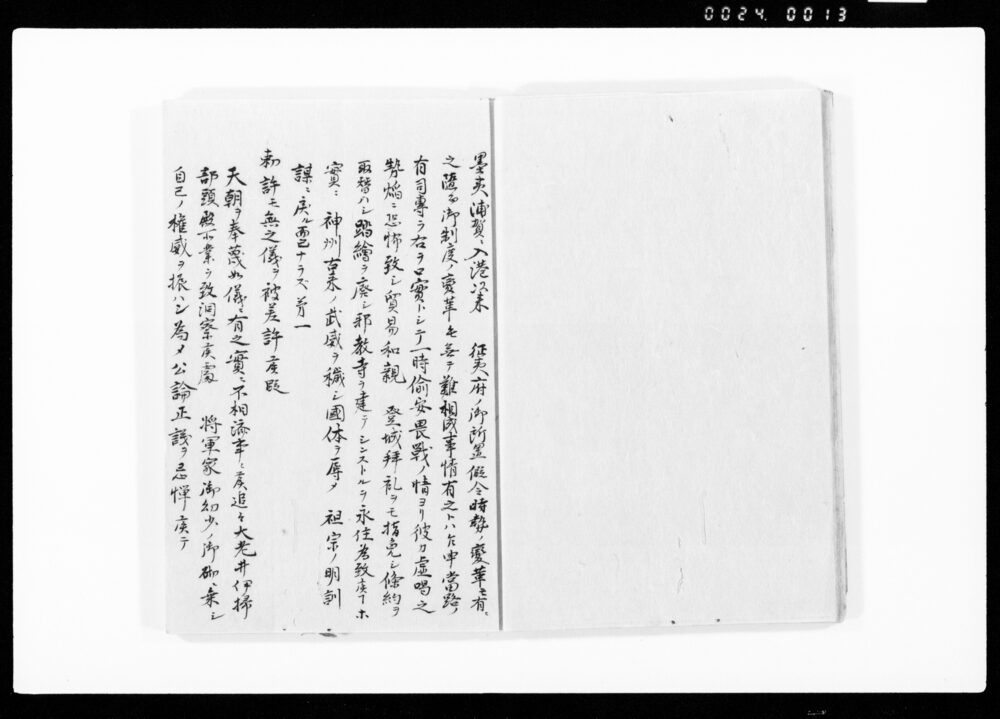 0024.0013
墨夷浦賀ニ入港以来　征夷府ノ御所置假令時勢ノ変革モ有
之随而御制度ノ変革モ無テ難相成事情有之トハ乍申當路ノ
有司専ラ右ヲ口實トシテ一時偷安畏戦ノ情ヨリ彼カ虚喝之
勢焔ニ恐怖致シ貿易和親　登城拝礼ヲモ指免シ條約ヲ
取替ハシ踏繪ヲ廃シ邪教寺ヲ建テミニストルヲ永住為致候ヿ
實ニ　神州古来ノ武威ヲ穢シ國体ヲ辱メ　祖宗ノ明訓
謀ニ戻ル而已ナラズ第一
勅許モ無之儀ヲ被差許候段
天朝ヲ奉蔑如儀ニ有之實ニ不相済事ニ候追々大老井伊掃
部頭所業ヲ致洞察候處　将軍家御幼少ノ御砌ニ乗シ
自己ノ権威ヲ振ハン為メ公論正議ヲ忌憚候テ